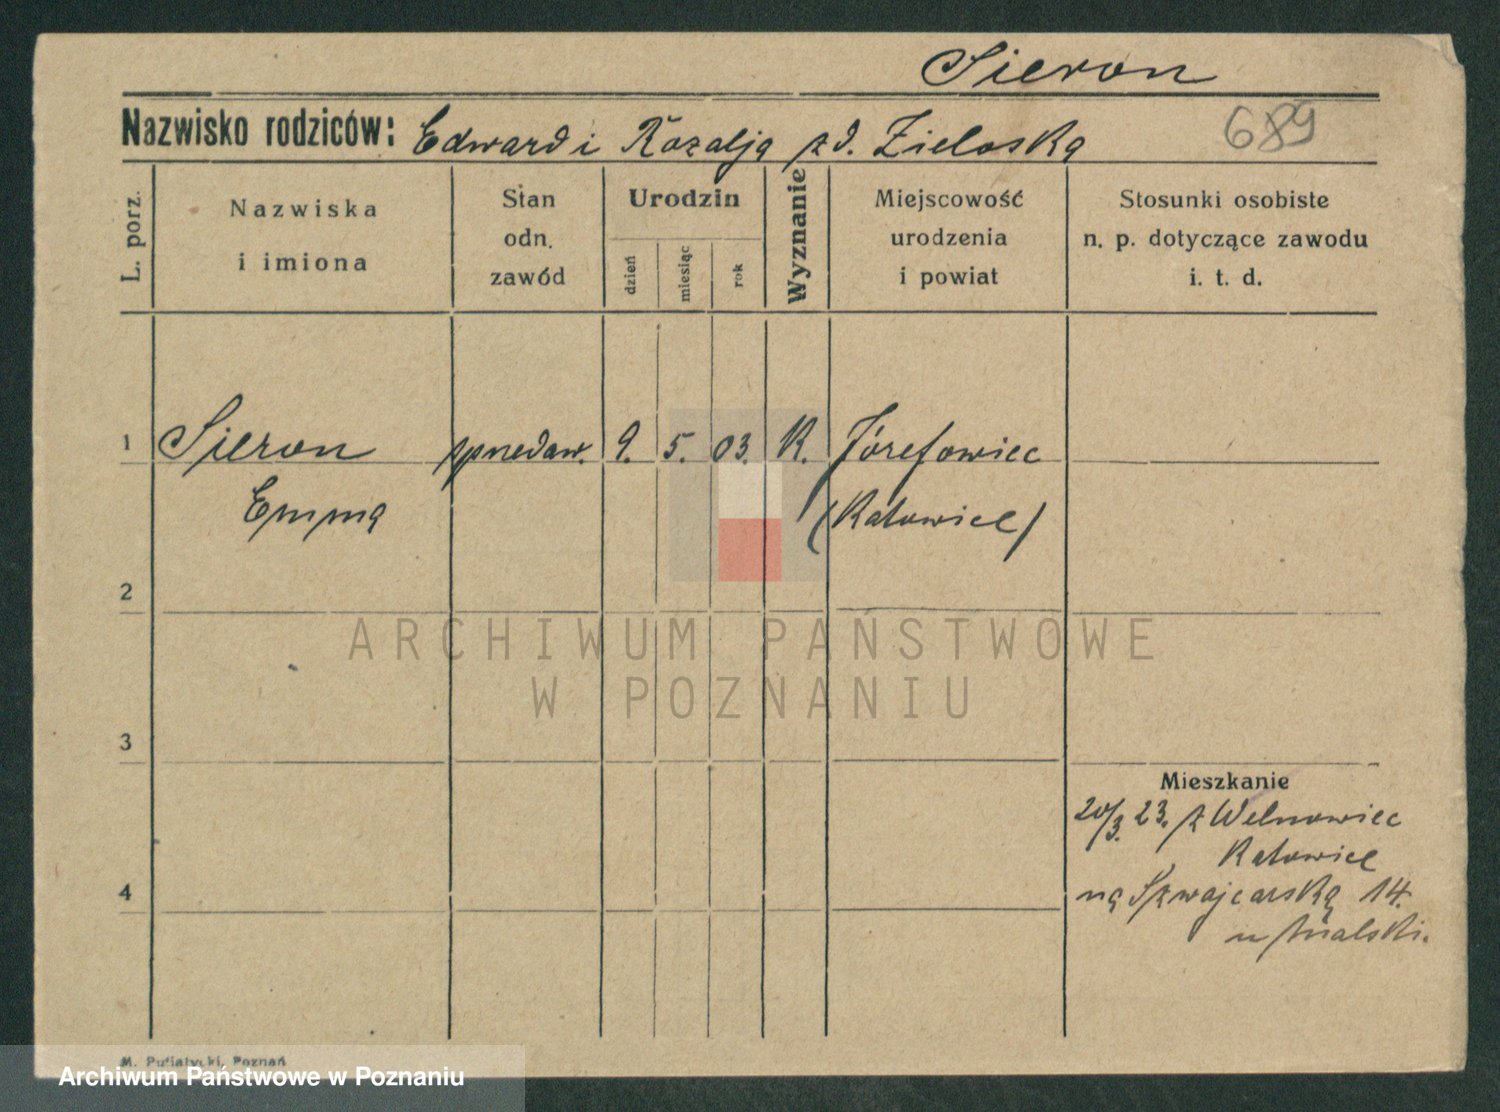 Sieron
Nazwisko rodziców: Edward i Rozalja zd. Zieloska
689
L. porz.
Nazwiska
i imiona
Stan
odn.
zawód
Urodzin
dzień
miesiąc
rok
Wyznanie
Miejscowość
urodzenia
i powiat
Stosunki osobiste
n. p. dotyczące zawodu
i. t. d.
1 Sieron spnedaw. 9. 5. 03. K. Józefowiec
Emma (Katowice)
2
ARCHIWUM PAŃSTWOWE
W POZNANIU
3
Mieszkanie
20/3. 23. z Welnowiec
Katowice
4
na Szwajcarską 14.
u
M. Putiatycki, Poznań
Archiwum Państwowe w Poznaniu